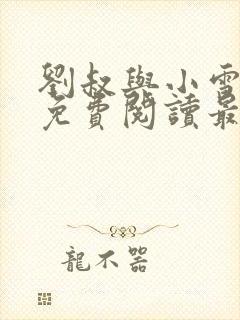 劉叔與小雪
免費閱讀最
龍不器